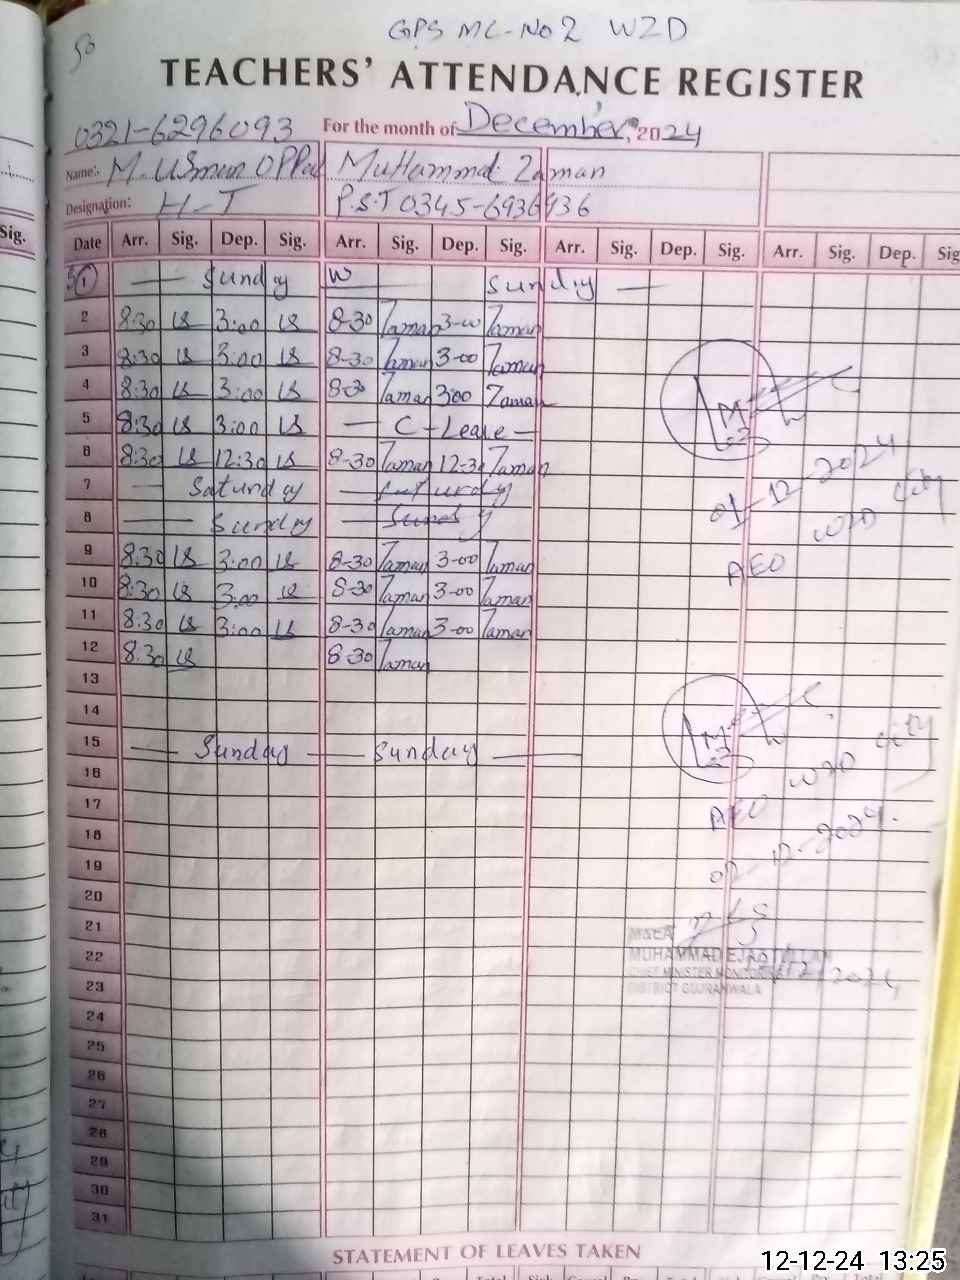 50
GPS MC-No 2 WZD
TEACHERS' ATTENDANCE REGISTER
0321-6296093 For the month of December, 2024
Name: M. USman OPPal Muhammad Zaman
Designation: H-T P.S.T 0345-6936936
Sig. Date Arr. Sig. Dep. Sig. Arr. Sig. Dep. Sig. Arr. Sig. Dep. Sig. Arr. Sig. Dep. Sig
1 — Sunday W — Sunday —
2 8:30 3:00 8-30 Zaman 3-00 Zaman
3 8:30 3:00 8-30 Zaman 3-00 Zaman
4 8:30 3:00 8-30 Zaman 3:00 Zaman
5 8:30 3:00 — C-Leave —
6 8:30 12:30 8-30 Zaman 12-30 Zaman
7 — Saturday — Saturday
8 — Sunday — Sunday
9 8:30 3:00 8-30 Zaman 3-00 Zaman
10 8:30 3:00 8-30 Zaman 3-00 Zaman
11 8:30 3:00 8-30 Zaman 3-00 Zaman
12 8:30 8-30 Zaman
13
14
15 — Sunday — Sunday —
16
17
18
19
20
21
22
23
24
25
26
27
28
29
30
31
01-12-2024
AEO WZD City
AEO WZD City
02-12-2024
MEA
MUHAMMAD EJAZ ULLAH
CHIEF MINISTER MONITORING
DISTRICT GUJRANWALA
STATEMENT OF LEAVES TAKEN
12-12-24 13:25